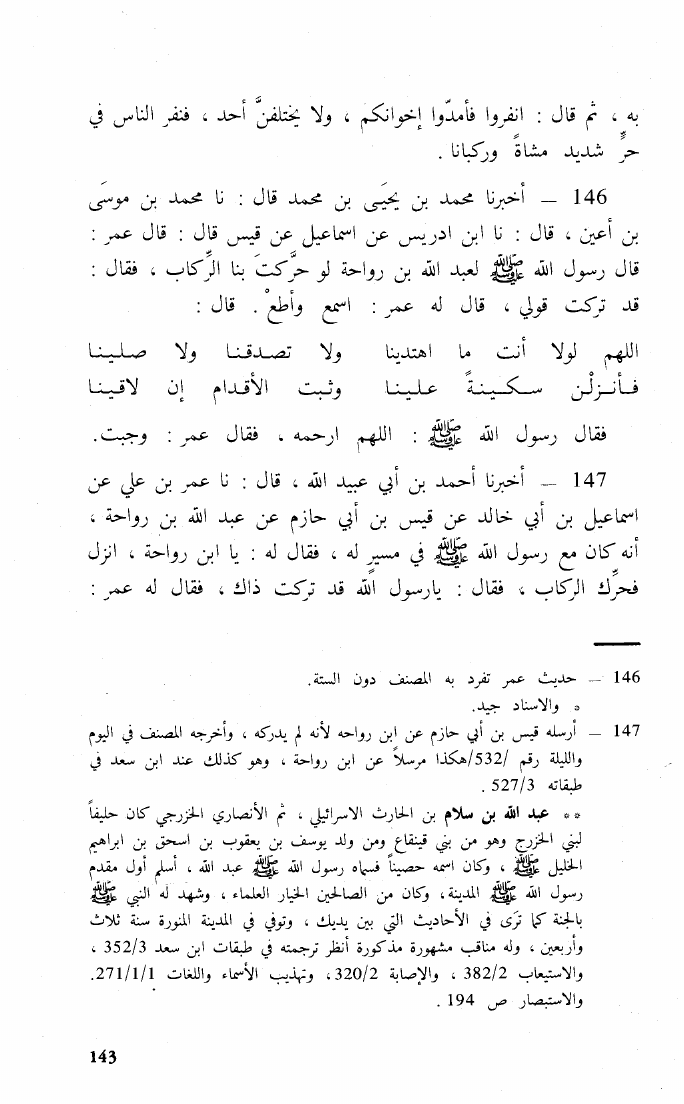 به ، ثم قال : انفروا فأمدّوا إخوانكم ، ولا يختلفنَّ أحد ، فنفر الناس في
حرٍّ شديد مشاةً وركبانا .
146 — أخبرنا محمد بن يحيَى بن محمد قال : نا محمد بن موسَى
بن أعين ، قال : نا ابن ادريس عن اسماعيل عن قيس قال : قال عمر :
قال رسول الله ﷺ لعبد الله بن رواحة لو حرَّكتَ بنا الرِّكاب ، فقال :
قد تركت قولي ، قال له عمر : اسمع وأطعْ . قال :
اللهم لولا أنت ما اهتدينا ولا تصدقنا ولا صلينا
فأنزلْن سكينةً علينا وثبت الأقدام إن لاقينا
فقال رسول الله ﷺ : اللهم ارحمه ، فقال عمر : وجبت.
147 — أخبرنا أحمد بن أبي عبيد الله ، قال : نا عمر بن علي عن
اسماعيل بن أبي خالد عن قيس بن أبي حازم عن عبد الله بن رواحة ،
أنه كان مع رسول الله ﷺ في مسيرٍ له ، فقال له : يا ابن رواحة ، انزل
فحرِّك الركاب ، فقال : يارسول الله قد تركت ذاك ، فقال له عمر :
146 — حديث عمر تفرد به المصنف دون الستة.
* والاسناد جيد.
147 — أرسله قيس بن أبي حازم عن ابن رواحه لأنه لم يدركه ، وأخرجه المصنف في اليوم
والليلة رقم /532/هكذا مرسلاً عن ابن رواحة ، وهو كذلك عند ابن سعد في
طبقاته 527/3 .
** عبد الله بن سلام بن الحارث الاسرائيلي ، ثم الأنصاري الخزرجي كان حليفاً
لبني الخزرج وهو من بني قينقاع ومن ولد يوسف بن يعقوب بن اسحق بن ابراهيم
الخليل ﷺ ، وكان اسمه حصيناً فسماه رسول الله ﷺ عبد الله ، أسلم أول مقدم
رسول الله ﷺ المدينة، وكان من الصالحين الخيار العلماء ، وشهد له النبي ﷺ
بالجنة كما ترَى في الأحاديث التي بين يديك ، وتوفي في المدينة المنورة سنة ثلاث
وأربعين ، وله مناقب مشهورة مذكورة أنظر ترجمته في طبقات ابن سعد 352/3 ،
والاستيعاب 382/2 ، والإصابة 320/2، وتهذيب الأسماء واللغات 271/1/1.
والاستبصار ص 194 .
143